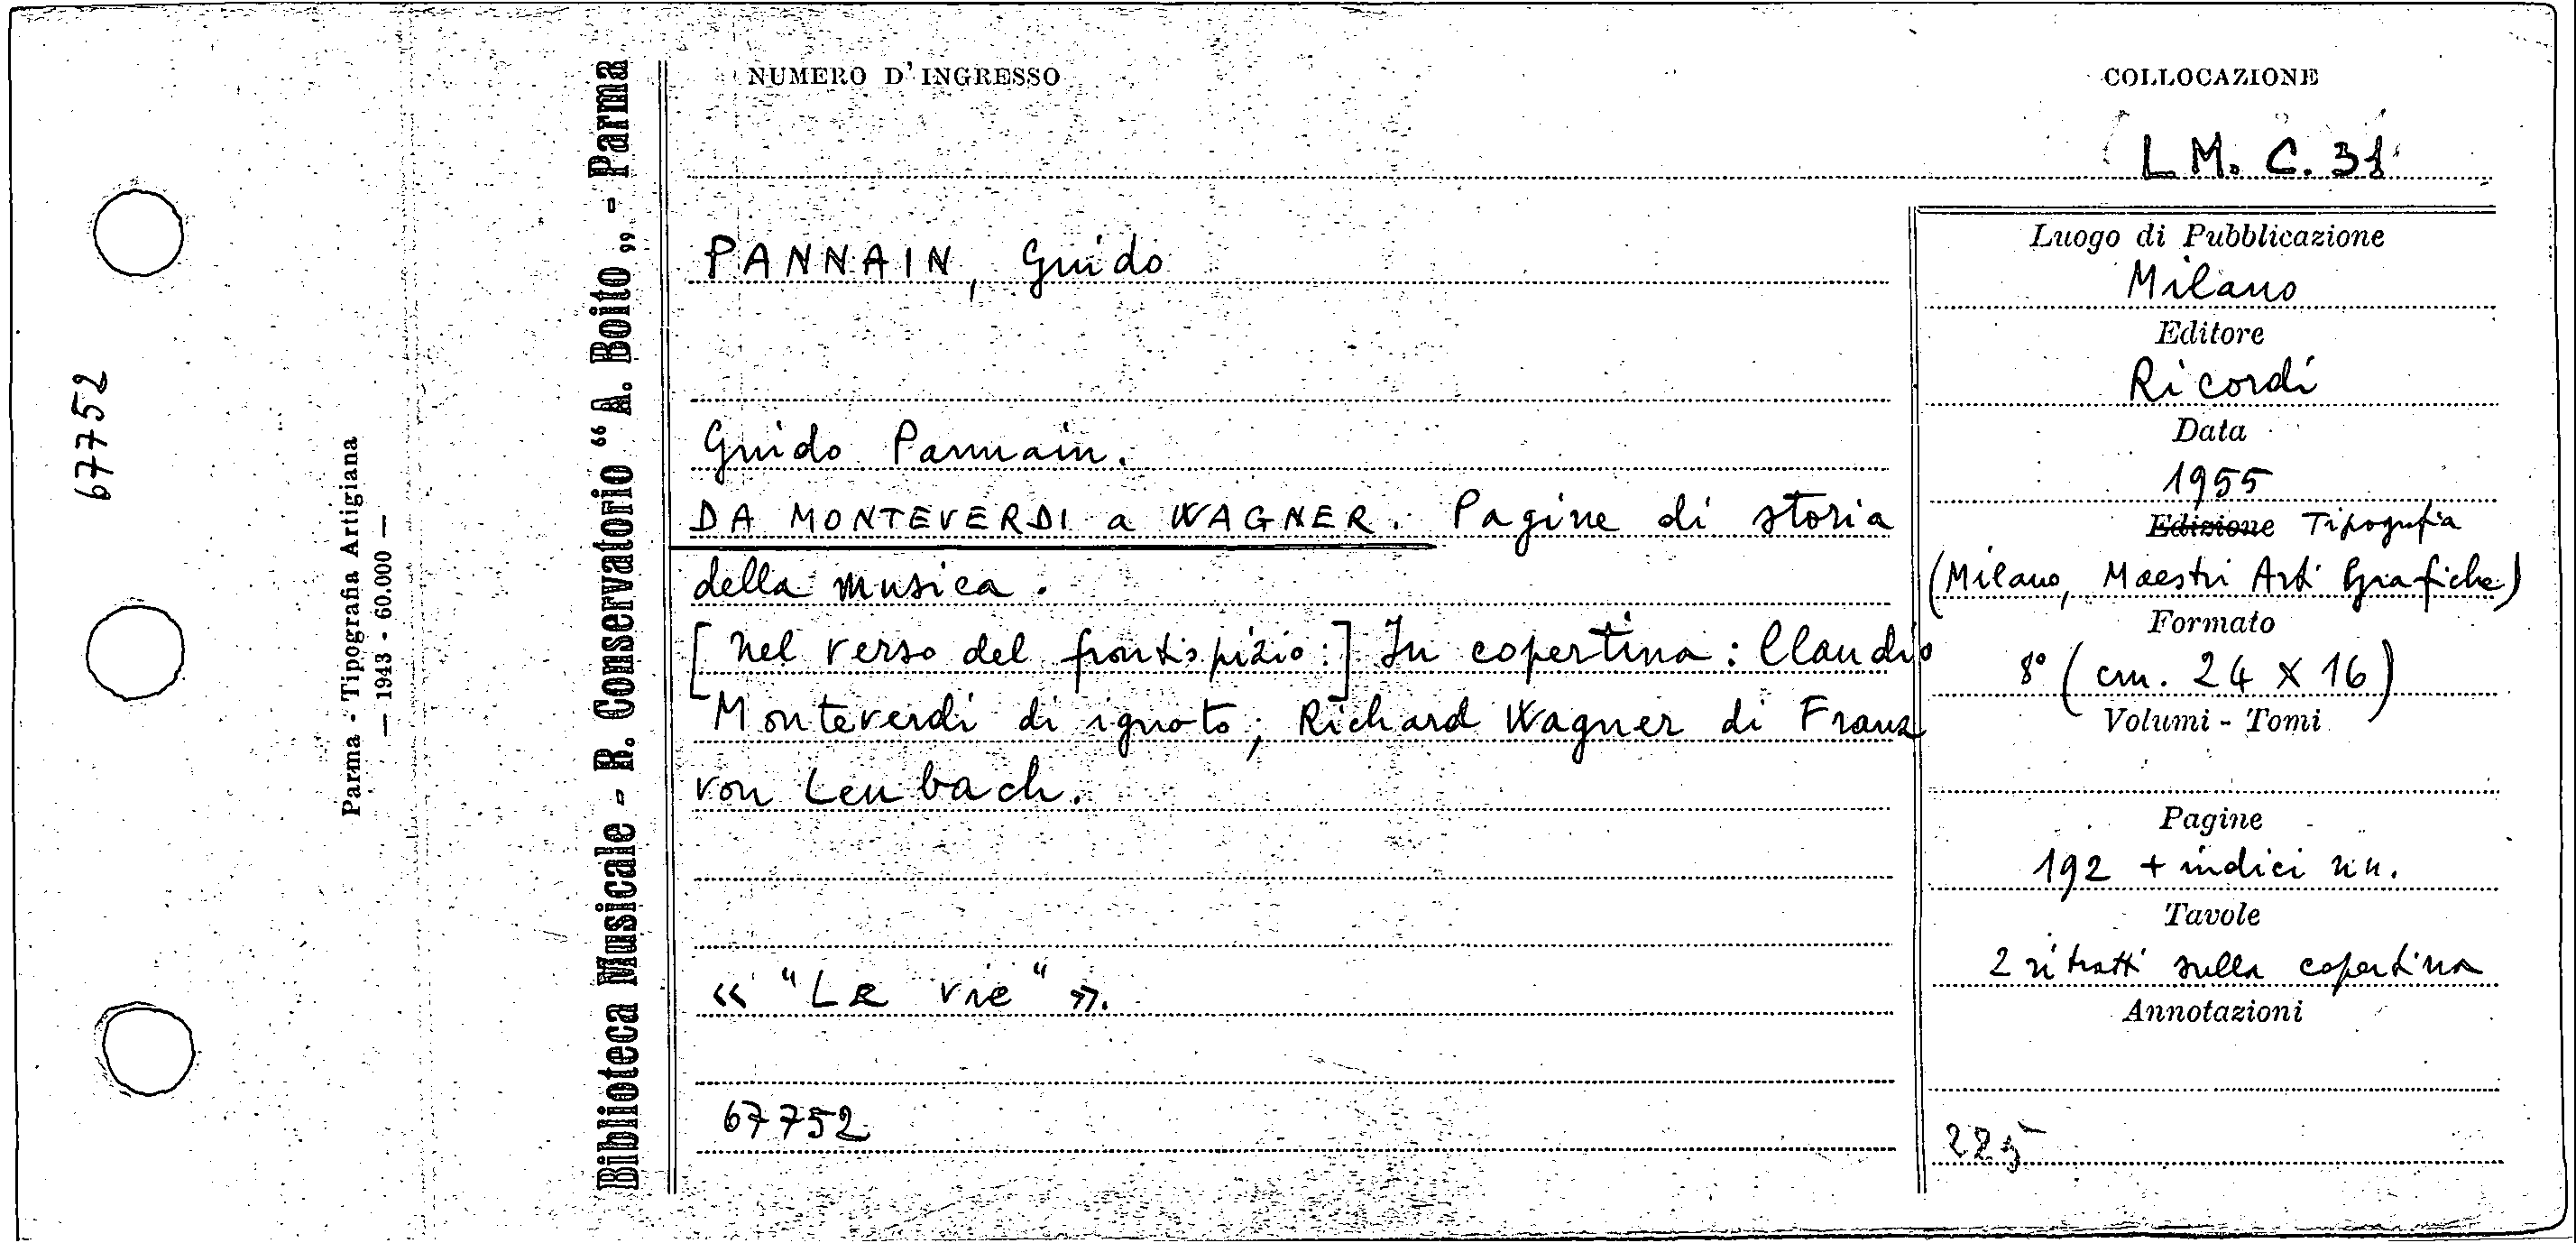 67752
Parma - Tipografia Artigiana
— 1943 - 60.000 —
Biblioteca Musicale - R. Conservatorio “A. Boito„ - Parma
NUMERO D'INGRESSO
COLLOCAZIONE
LM. C. 31
PANNAIN, Guido
Guido Pannain.
DA MONTEVERDI a WAGNER. Pagine di storia
della musica.
[nel verso del frontispizio:] In copertina: Claudio
Monteverdi di ignoto; Richard Wagner di Franz
von Lenbach.
« "Le vie" ».
67752
Luogo di Pubblicazione
Milano
Editore
Ricordi
Data
1955
Edizione Tipografia
(Milano, Maestri Arti Grafiche)
Formato
8° (cm. 24 x 16)
Volumi - Tomi
Pagine
192 + indici nn.
Tavole
2 ritratti sulla copertina
Annotazioni
225